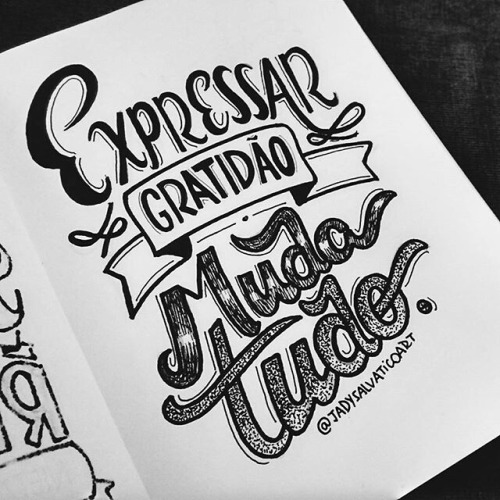 EXPRESSAR
GRATIDÃO
Muda
tudo.
@JADYSALVATICOART